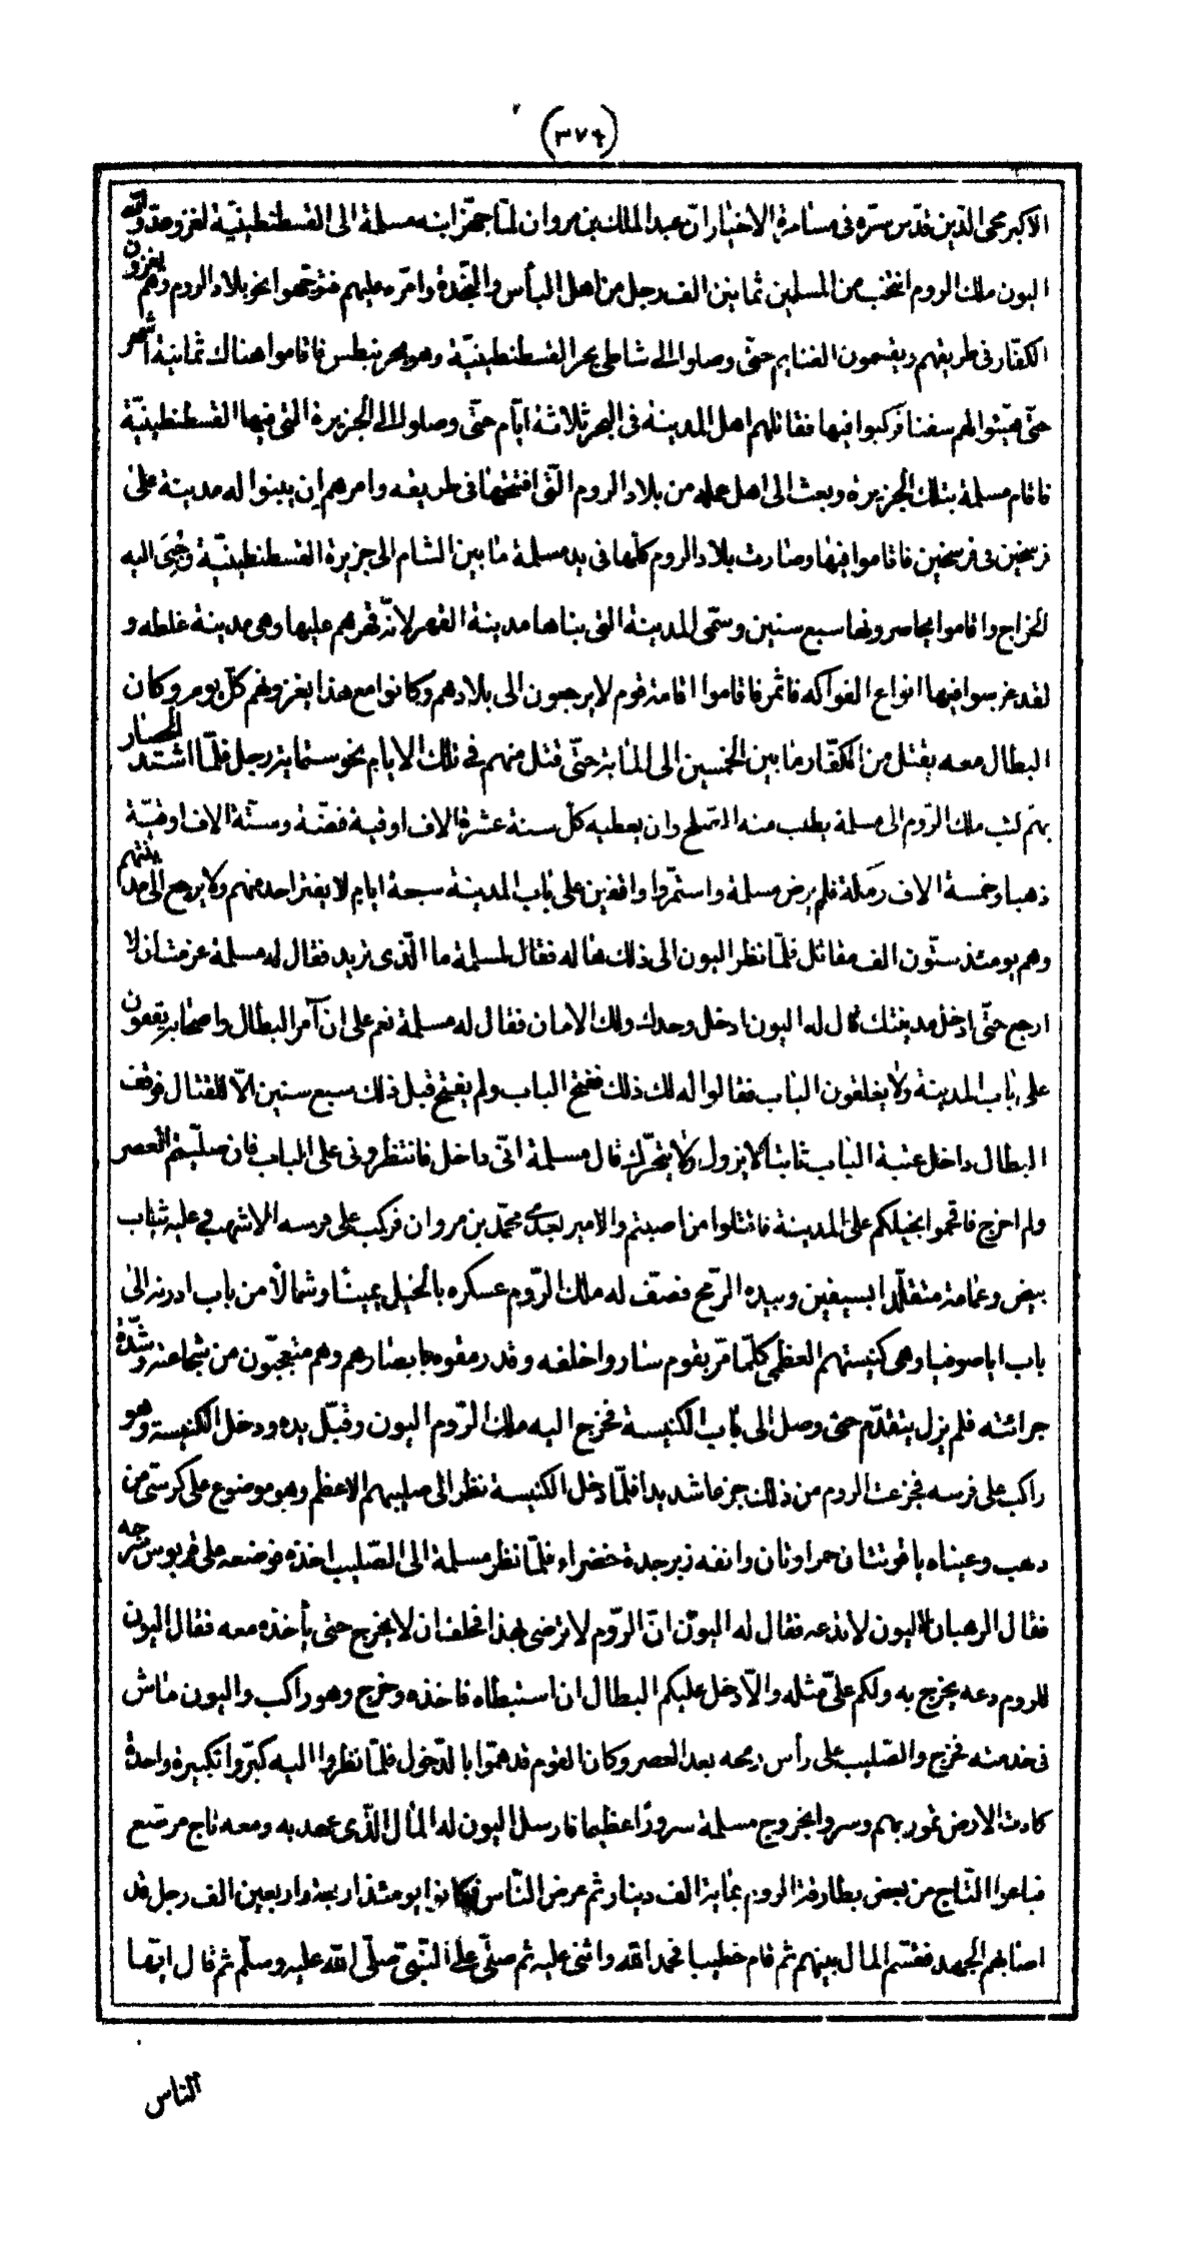 (٣٧٩)
الاكبر محى الدّين قدّس سرّه فى مسامرة الاخيار انّ عبد الملك بن مروان لمّا جهّز ابنه مسلمة الى القسطنطينيّة لغزو عدوّ الله
اليون ملك الروم انتخب من المسلمين ثمانين الف رجل من اهل البأس والنجدة وامّره عليهم فتوجّهوا نحو بلاد الروم وهم يغزون
الكفّار فى طريقهم ويقسمون الغنايم حتّى وصلوا الى شاطى بحر القسطنطينيّة وهو بحر نيطس فاقاموا هناك ثمانية اشهر
حتّى هيّئوا لهم سفنا فركبوا فيها فقاتلهم اهل المدينة فى البحر ثلاثة ايّام حتّى وصلوا الى الجزيرة التى فيها القسطنطينيّة
فاقام مسلمة بتلك الجزيرة وبعث الى اهل عمله من بلاد الروم الّتى افتتحها فى طريقه وامرهم ان يبنوا له مدينة على
فرسخين فى فرسخين فاقاموا فيها وصارت بلاد الروم كلّها فى يد مسلمة ما بين الشام الى جزيرة القسطنطينيّة وجُبِىَ اليه
الخراج واقاموا يحاصرونها سبع سنين وسمّى المدينة التى بناها مدينة القهر لانّه قهرهم عليها وهى مدينة غلطه و
لقد غرسوا فيها انواع الفواكه فاثمر فاقاموا اقامة قوم لا يرجعون الى بلادهم وكانوا مع هذا يغزونهم كلّ يوم وكان
البطال معه يقتل من الكفّار ما بين الخمسين الى المائة حتّى قتل منهم فى تلك الايام نحو ستمائة رجل فلمّا اشتدّ الحصار
بهم كتب ملك الرّوم الى مسلمة يطلب منه الصّلح وان يعطيه كلّ سنة عشرة الاف اوقية فضّة وستّة الاف اوقيّة
ذهبا وخمسة الاف رَمَكة فلم يرض مسلمة واستمرّوا واقفين على باب المدينة سبعة ايام لا يفتر احد منهم ولا يرجع الى مدينتهم
وهم يومئذ ستّون الف مقاتل فلمّا نظر اليون الى ذلك هاله فقال لمسلمة ما الّذى تريد فقال له مسلمة عزمت ان لا
ارجع حتّى ادخل مدينتك قال له اليون ادخل وحدك ولك الامان فقال له مسلمة نعم على ان آمر البطال واصحابه يقفون
على باب المدينة ولا يغلقون الباب فقالوا له لك ذلك ففتح الباب ولم يفتح قبل ذلك سبع سنين الّا للقتال فوقف
البطال داخل عتبة الباب ثابتا لا يزول ولا يتحرّك قال مسلمة انّى داخل فانتظرونى على الباب فان صلّيتم العصر
ولم اخرج فاقحموا بخيلكم على المدينة فاقتلوا من اصبتم والامير بعدى محمّد بن مروان فركب على فرسه الاشهب وعليه ثياب
بيض وعمامة متقلّدا بسيفين وبيده الرّمح فصفّ له ملك الرّوم عسكره بالخيل يمينًا وشمالًا من باب ادرنه الى
باب اياصوفيا وهى كنيستهم العظمى كلّما مرّ بقوم ساروا خلفه وقد رمقوه بابصارهم وهم متعجّبون من شجاعته وشدّة
جرائته فلم يزل يتقدّم حتى وصل الى باب الكنيسة فخرج اليه ملك الرّوم اليون وقبّل يده ودخل الكنيسة وهو
راكب على فرسه فجزعت الروم من ذلك جزعا شديدا فلمّا دخل الكنيسة نظر الى صليبهم الاعظم وهو موضوع على كرسىّ من
ذهب وعيناه ياقوتتان حمراوتان وانفه زبرجدة خضراء فلمّا نظر مسلمة الى الصّليب اخذه فوضعه على قربوس سرجه
فقال الرهبان لاليون لا تدعه فقال له اليون انّ الرّوم لا ترضى بهذا فحلف ان لا يخرج حتى يأخذه معه فقال اليون
للروم دعه يخرج به ولكم علىّ مثله والّا دخل عليكم البطال ان استبطاه فاخذه وخرج وهو راكب واليون ماش
فى خدمته فخرج والصّليب على رأس رمحه بعد العصر وكان القوم قد همّوا بالدّخول فلمّا نظروا اليه كبّروا تكبيرة واحدة
كادت الارض تمور بهم وسروا بخروج مسلمة سرورًا عظيما فارسل اليون له المال الّذى عهد به ومعه تاج مرصّع
فباعوا التّاج من بعض بطارقة الروم بمائة الف دينار ثم عرض النّاس فكانوا يومئذ اربعة واربعين الف رجل قد
اصابهم الجهد فقسّم المال بينهم ثم قام خطيبا فحمد الله واثنى عليه ثم صلّى على النّبىّ صلّى الله عليه وسلّم ثم قال ايّها
النّاس